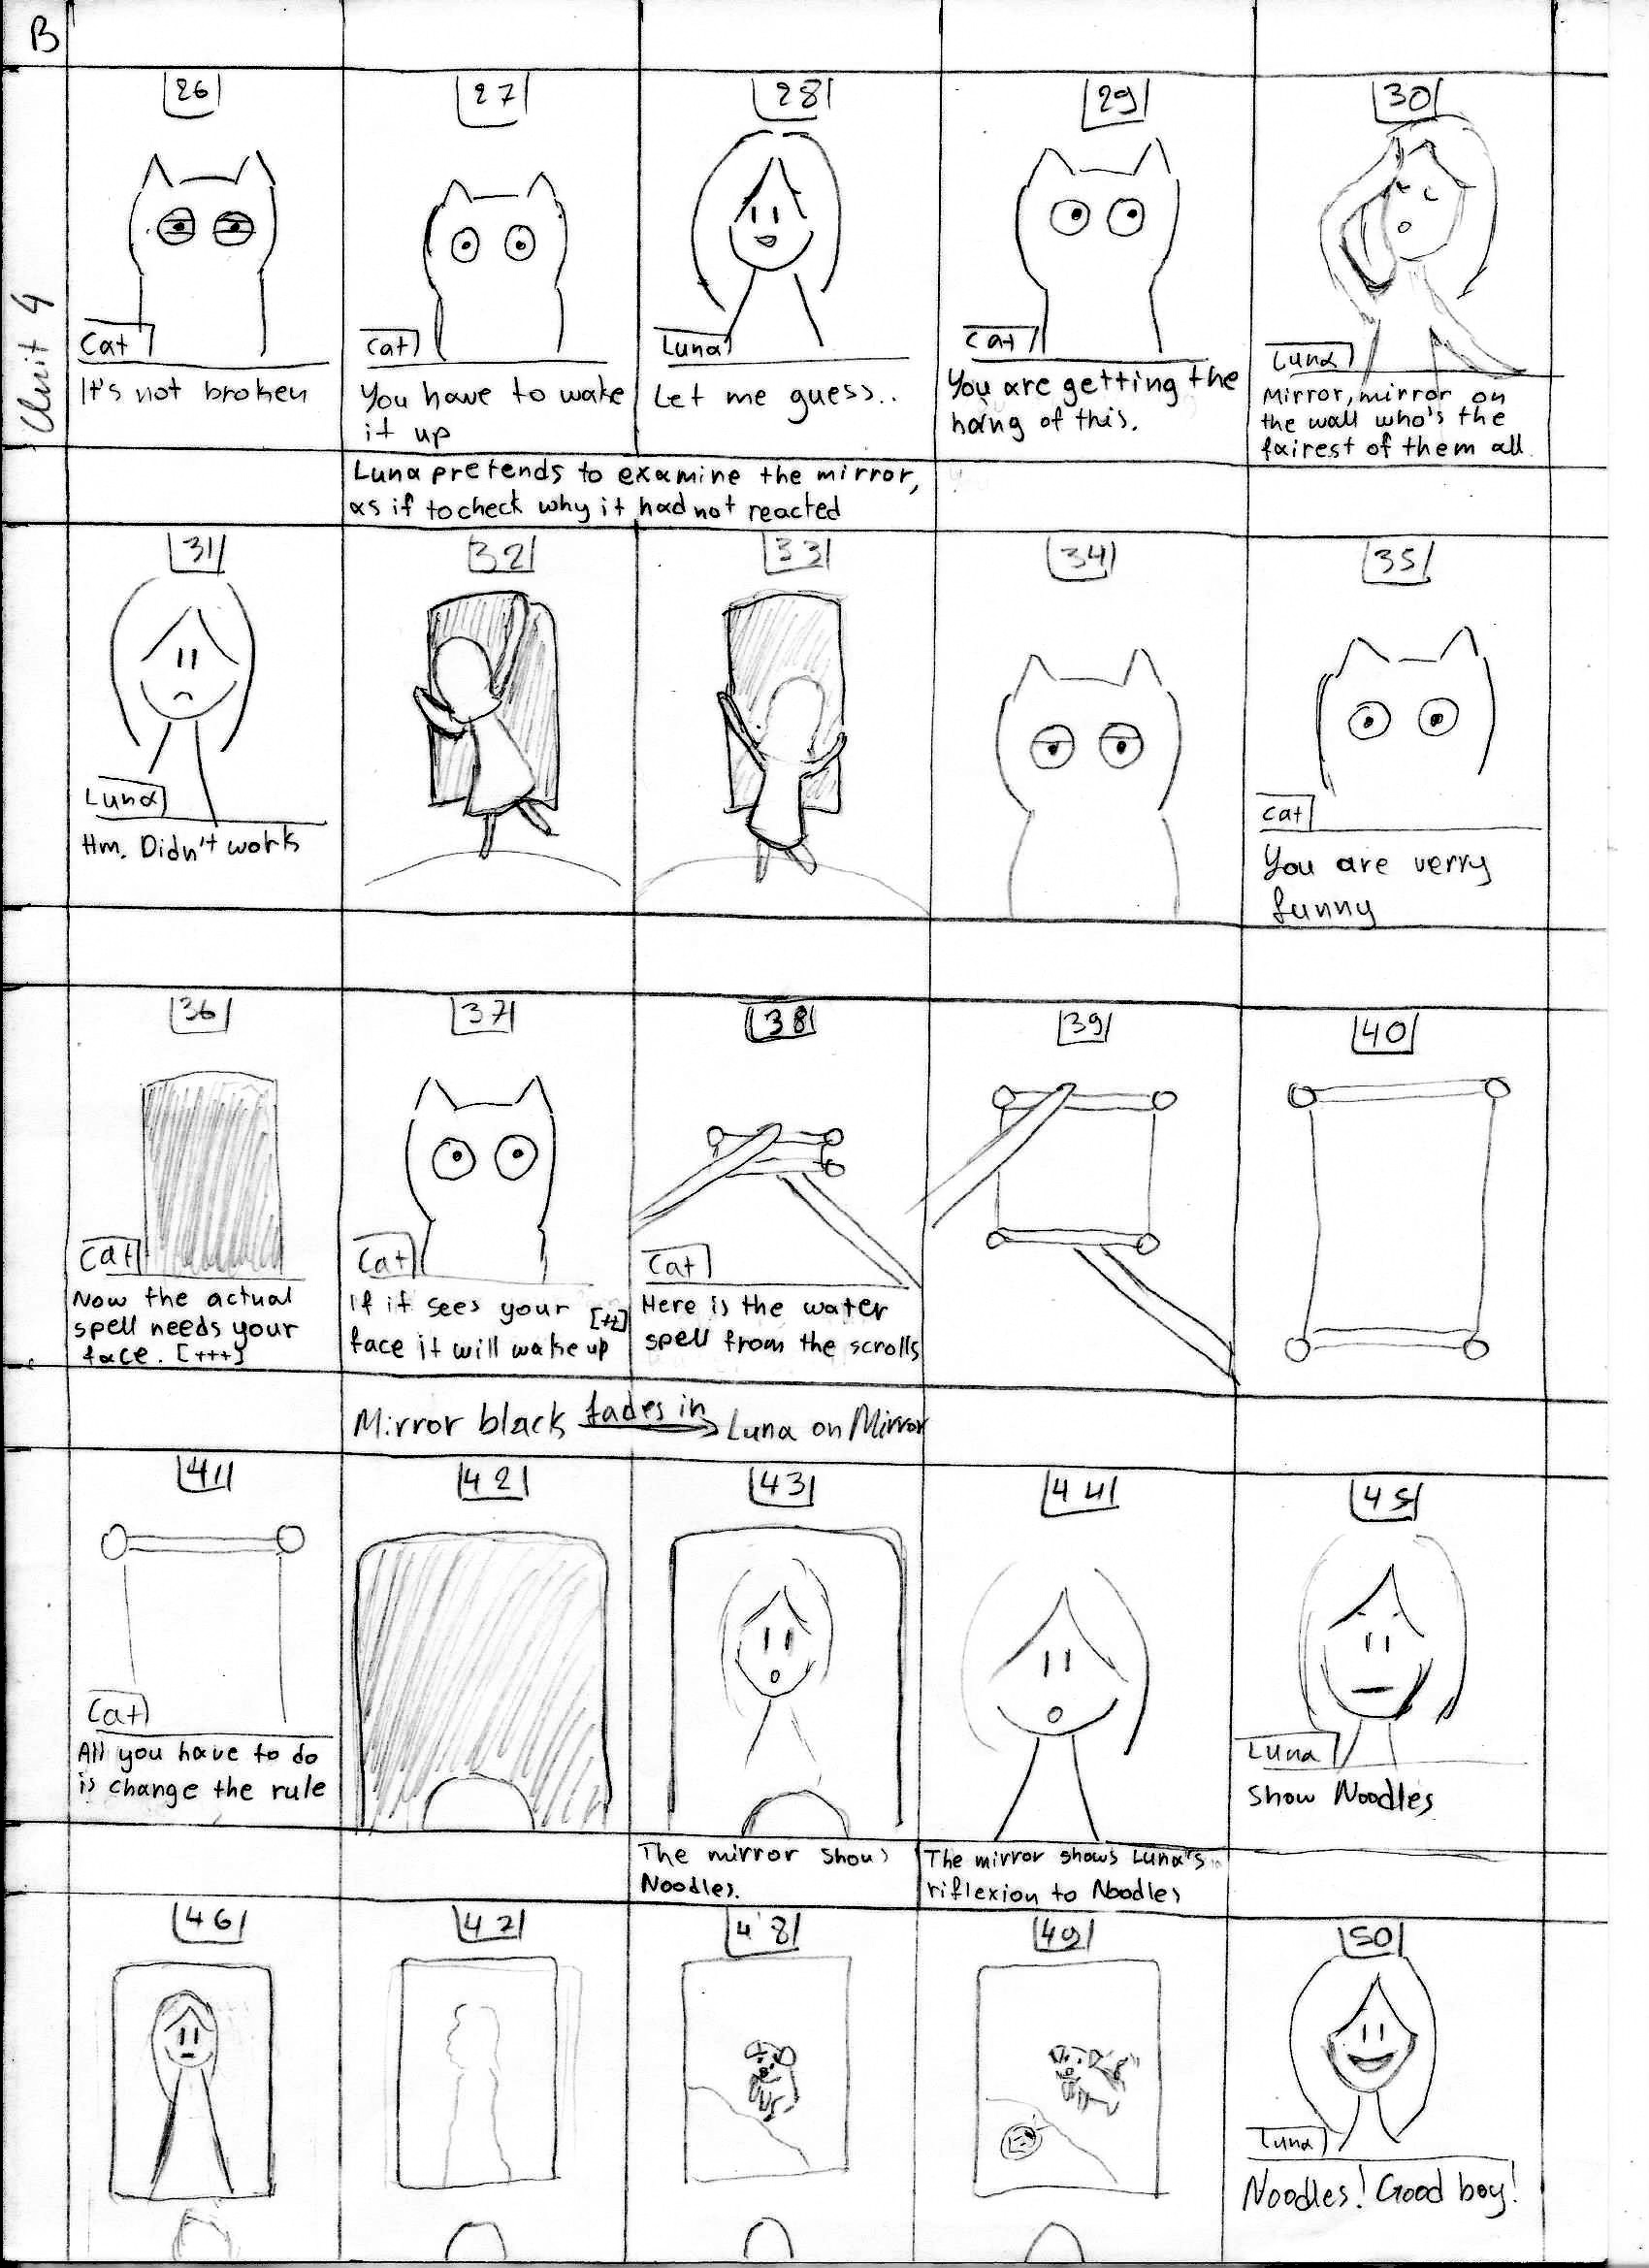 B
Unit 4
26
Cat
It's not broken
27
Cat
You have to wake
it up
28
Luna
Let me guess..
29
Cat
You are getting the
hang of this.
30
Luna
Mirror, mirror on
the wall who's the
fairest of them all.
Luna pretends to examine the mirror,
as if to check why it had not reacted
31
Luna
Hm. Didn't work
32
33
34
35
Cat
You are verry
funny
36
Cat
Now the actual
spell needs your
face. [+++]
37
Cat
If it sees your [++]
face it will wake up
38
Cat
Here is the water
spell from the scrolls
39
40
Mirror black fades in Luna on Mirror
41
Cat
All you have to do
is change the rule
42
43
44
45
Luna
Show Noodles
The mirror shows
Noodles.
The mirror shows Luna's
riflexion to Noodles
46
47
48
49
50
Luna
Noodles! Good boy!